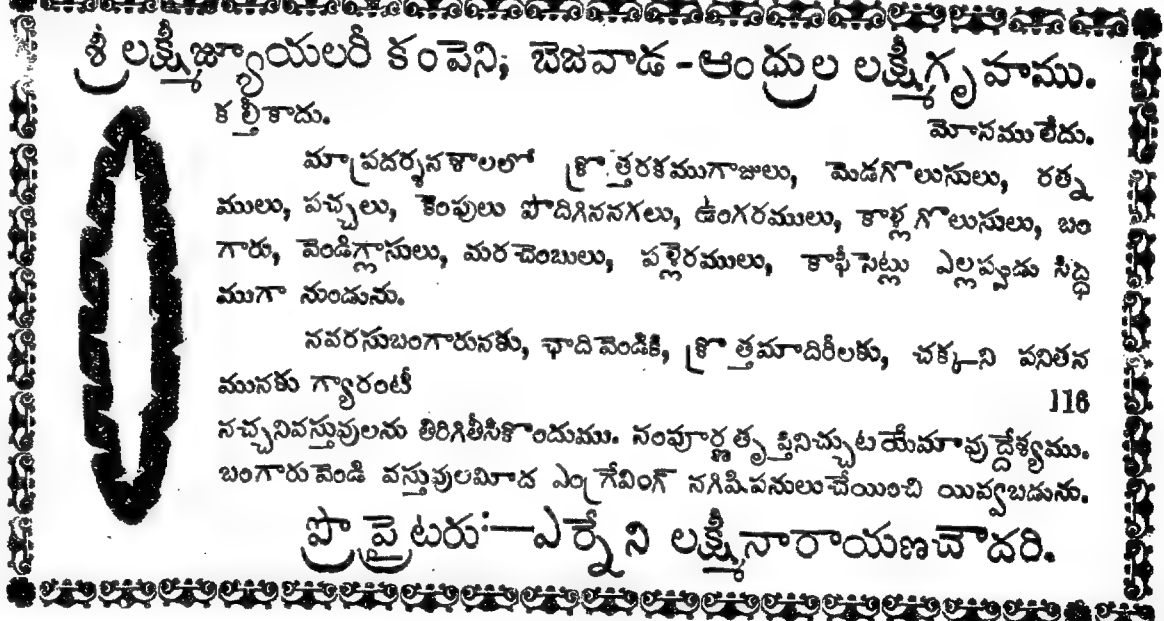 శ్రీ లక్ష్మీజ్యూయలరీ కంపెని; బెజవాడ - ఆంధ్రుల లక్ష్మీగృహము.
కల్తీకాదు. మోసములేదు.
మాప్రదర్శనశాలలో క్రొత్తరకముగాజులు, మెడగొలుసులు, రత్న
ములు, పచ్చలు, కెంపులు పొదిగిననగలు, ఉంగరములు, కాళ్లగొలుసులు, బం
గారు, వెండిగ్లాసులు, మరచెంబులు, పళ్లెరములు, కాఫీసెట్లు ఎల్లప్పుడు సిద్ధ
ముగా నుండును.
నవరసుబంగారునకు, ఛాదివెండికి, క్రొత్తమాదిరీలకు, చక్కని పనితన
మునకు గ్యారంటీ 116
నచ్చనివస్తువులను తిరిగితీసికొందుము. సంపూర్ణతృప్తినిచ్చుటయేమావుద్దేశ్యము.
బంగారువెండి వస్తువులమీద ఎంగ్రేవింగ్ నగిషీపనులుచేయించి యివ్వబడును.
ప్రొప్రైటరు:—ఎర్నేని లక్ష్మీనారాయణచౌదరి.